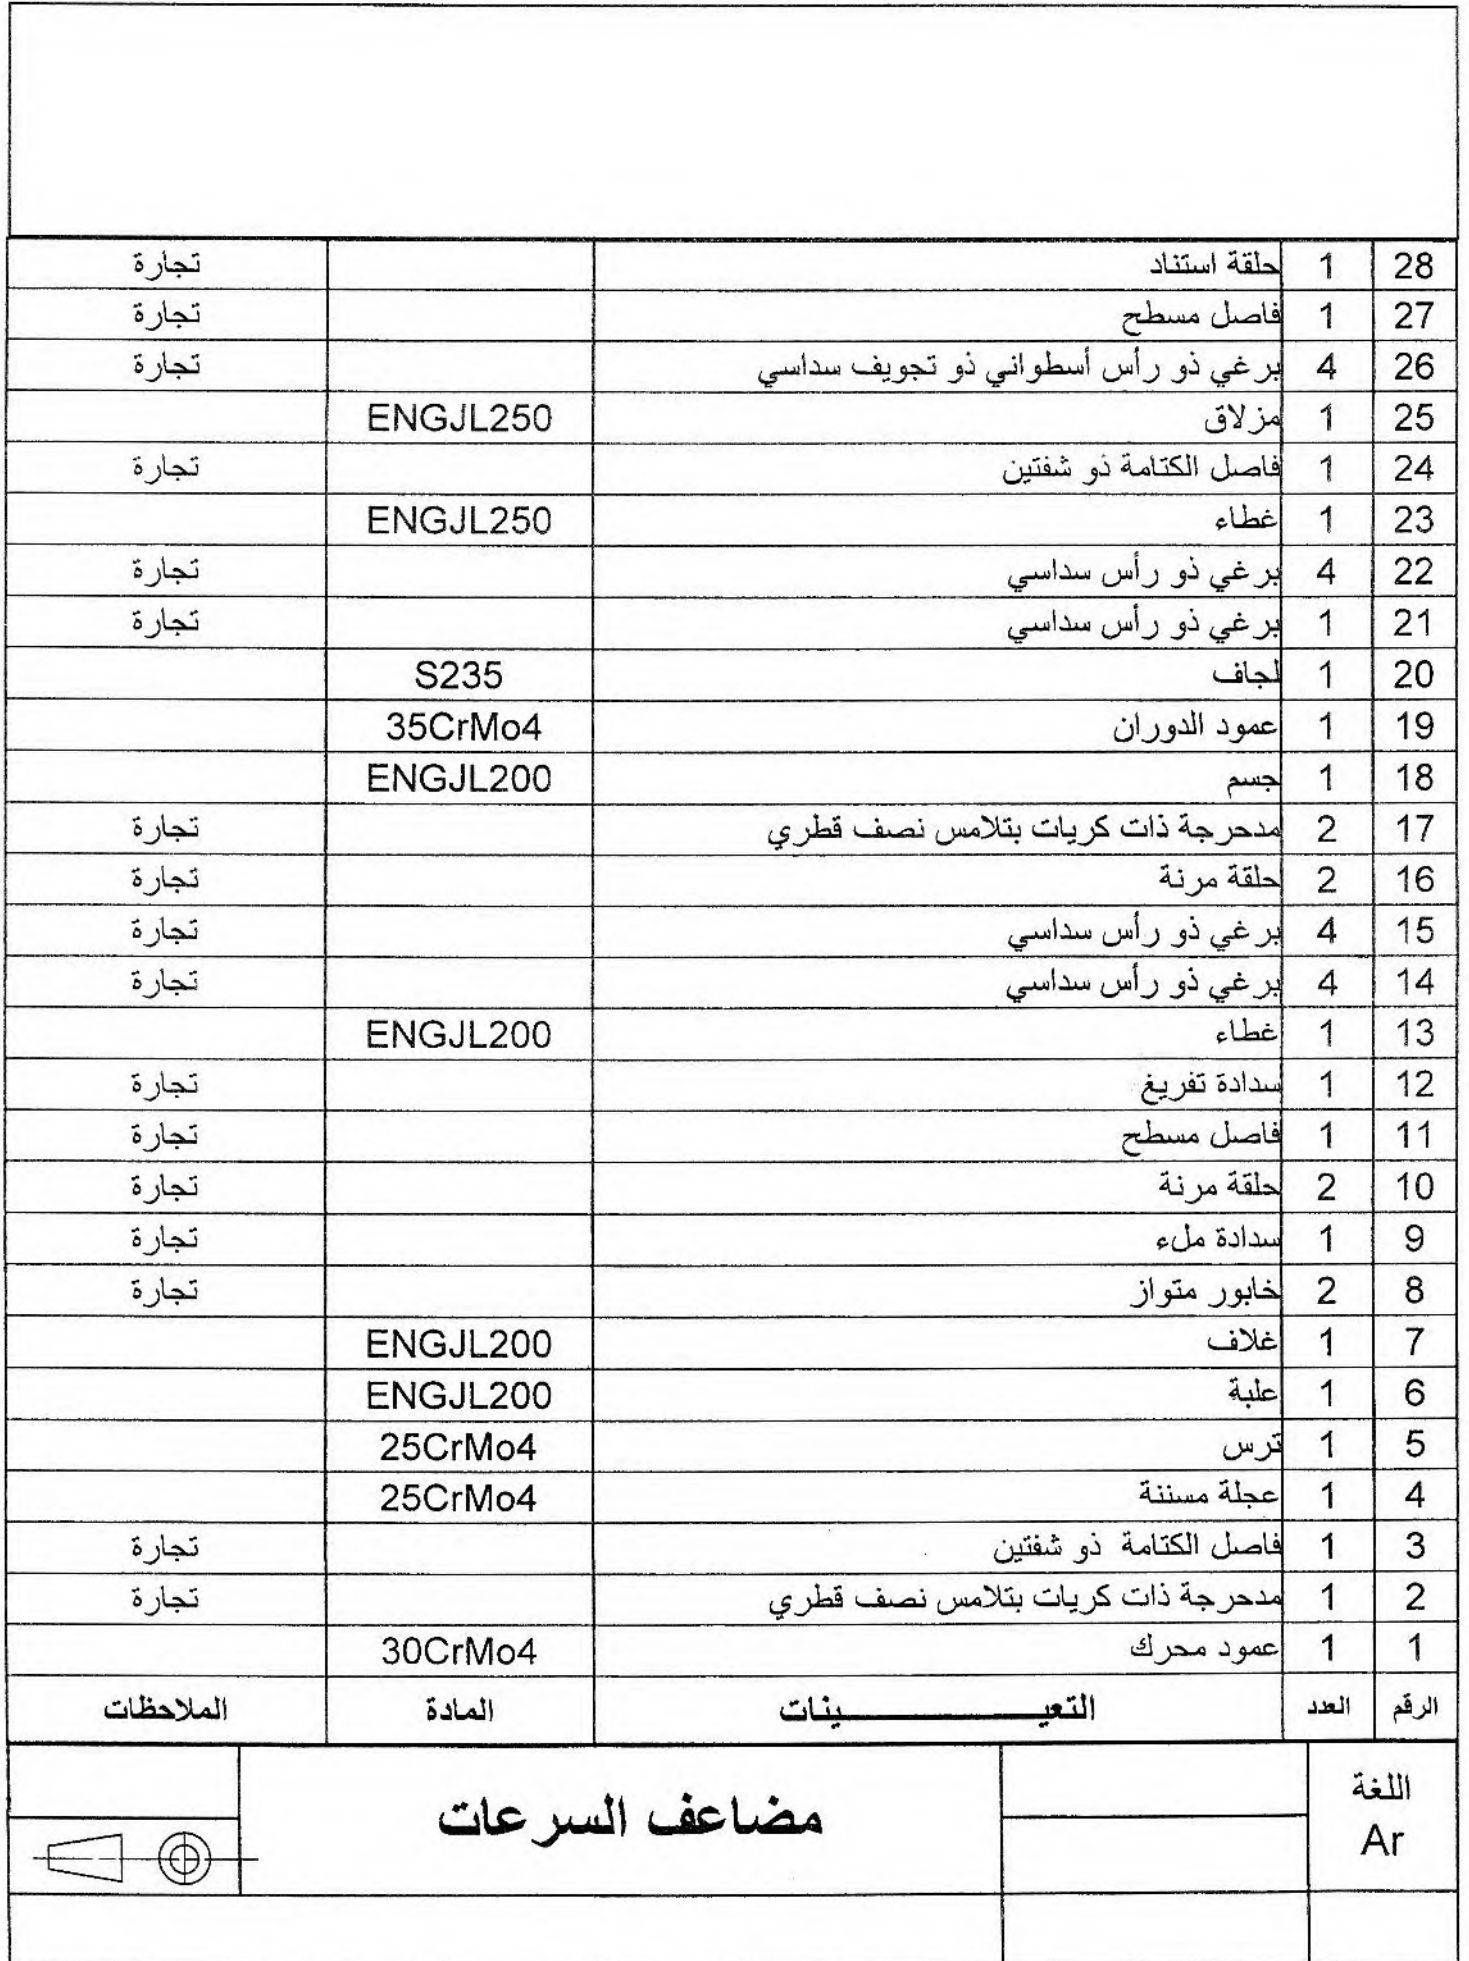 28 1 حلقة استناد تجارة
27 1 فاصل مسطح تجارة
26 4 برغي ذو رأس أسطواني ذو تجويف سداسي تجارة
25 1 مزلاق ENGJL250
24 1 فاصل الكتامة ذو شفتين تجارة
23 1 غطاء ENGJL250
22 4 برغي ذو رأس سداسي تجارة
21 1 برغي ذو رأس سداسي تجارة
20 1 لجاف S235
19 1 عمود الدوران 35CrMo4
18 1 جسم ENGJL200
17 2 مدحرجة ذات كريات بتلامس نصف قطري تجارة
16 2 حلقة مرنة تجارة
15 4 برغي ذو رأس سداسي تجارة
14 4 برغي ذو رأس سداسي تجارة
13 1 غطاء ENGJL200
12 1 سدادة تفريغ تجارة
11 1 فاصل مسطح تجارة
10 2 حلقة مرنة تجارة
9 1 سدادة ملء تجارة
8 2 خابور متواز تجارة
7 1 غلاف ENGJL200
6 1 علبة ENGJL200
5 1 ترس 25CrMo4
4 1 عجلة مسننة 25CrMo4
3 1 فاصل الكتامة ذو شفتين تجارة
2 1 مدحرجة ذات كريات بتلامس نصف قطري تجارة
1 1 عمود محرك 30CrMo4
الرقم العدد التعيـــــــــــــينات المادة الملاحظات
اللغة
Ar
مضاعف السرعات